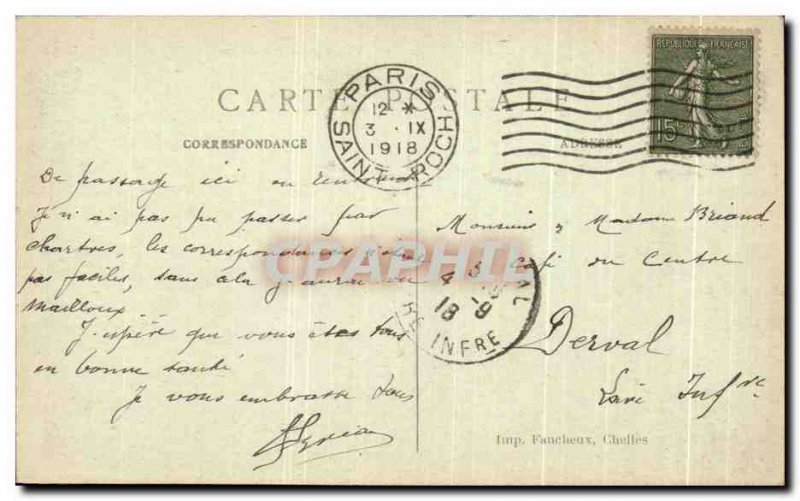 CARTE POSTALE
CORRESPONDANCE
ADRESSE
REPUBLIQUE FRANÇAISE
15c
PARIS
12 *
3 . IX
1918
SAINT ROCH
De passage ici en
Je n'ai pas pu passer par
Chartres, les correspondances
pas faciles, sans ça j'aurai vu
Mailloux.
J'espère que vous êtes tous
en bonne santé
Je vous embrasse tous
Monsieur & Madame Briand
Café du Centre
Derval
Loire Infre
4 - 9
18
INFRE
CPAPHIL
Imp. Faucheux, Chelles